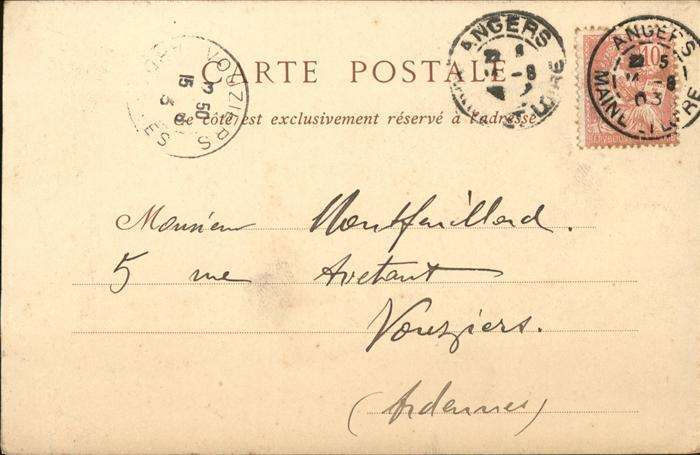 CARTE POSTALE
Ce côté est exclusivement réservé à l'adresse
ANGERS
MAINE-ET-LOIRE
ANGERS
5
03
MAINE-ET-LOIRE
10
VOUZIERS
3 50
15 8
Monsieur Montfeuillard.
5 rue Avetant
Vouziers.
(Ardennes)